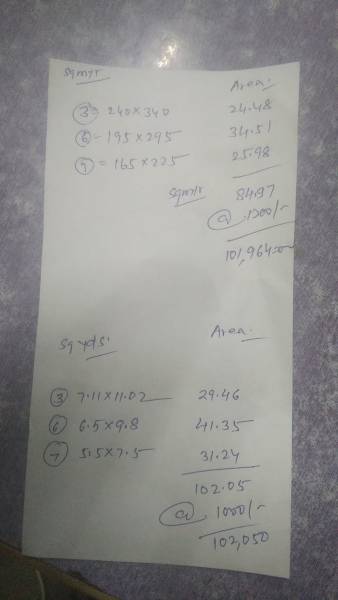 Sqmtr
Area.
③ = 240x340 24.48
⑥ = 195x295 34.51
⑦ = 165x225 25.98
Sqmtr 84.97
@ 1200/-
101,964=00
Sqyds. Area.
③ 7.11x11.02 29.46
⑥ 6.5x9.8 41.35
⑦ 5.5x7.5 31.24
102.05
@ 1000/-
102,050